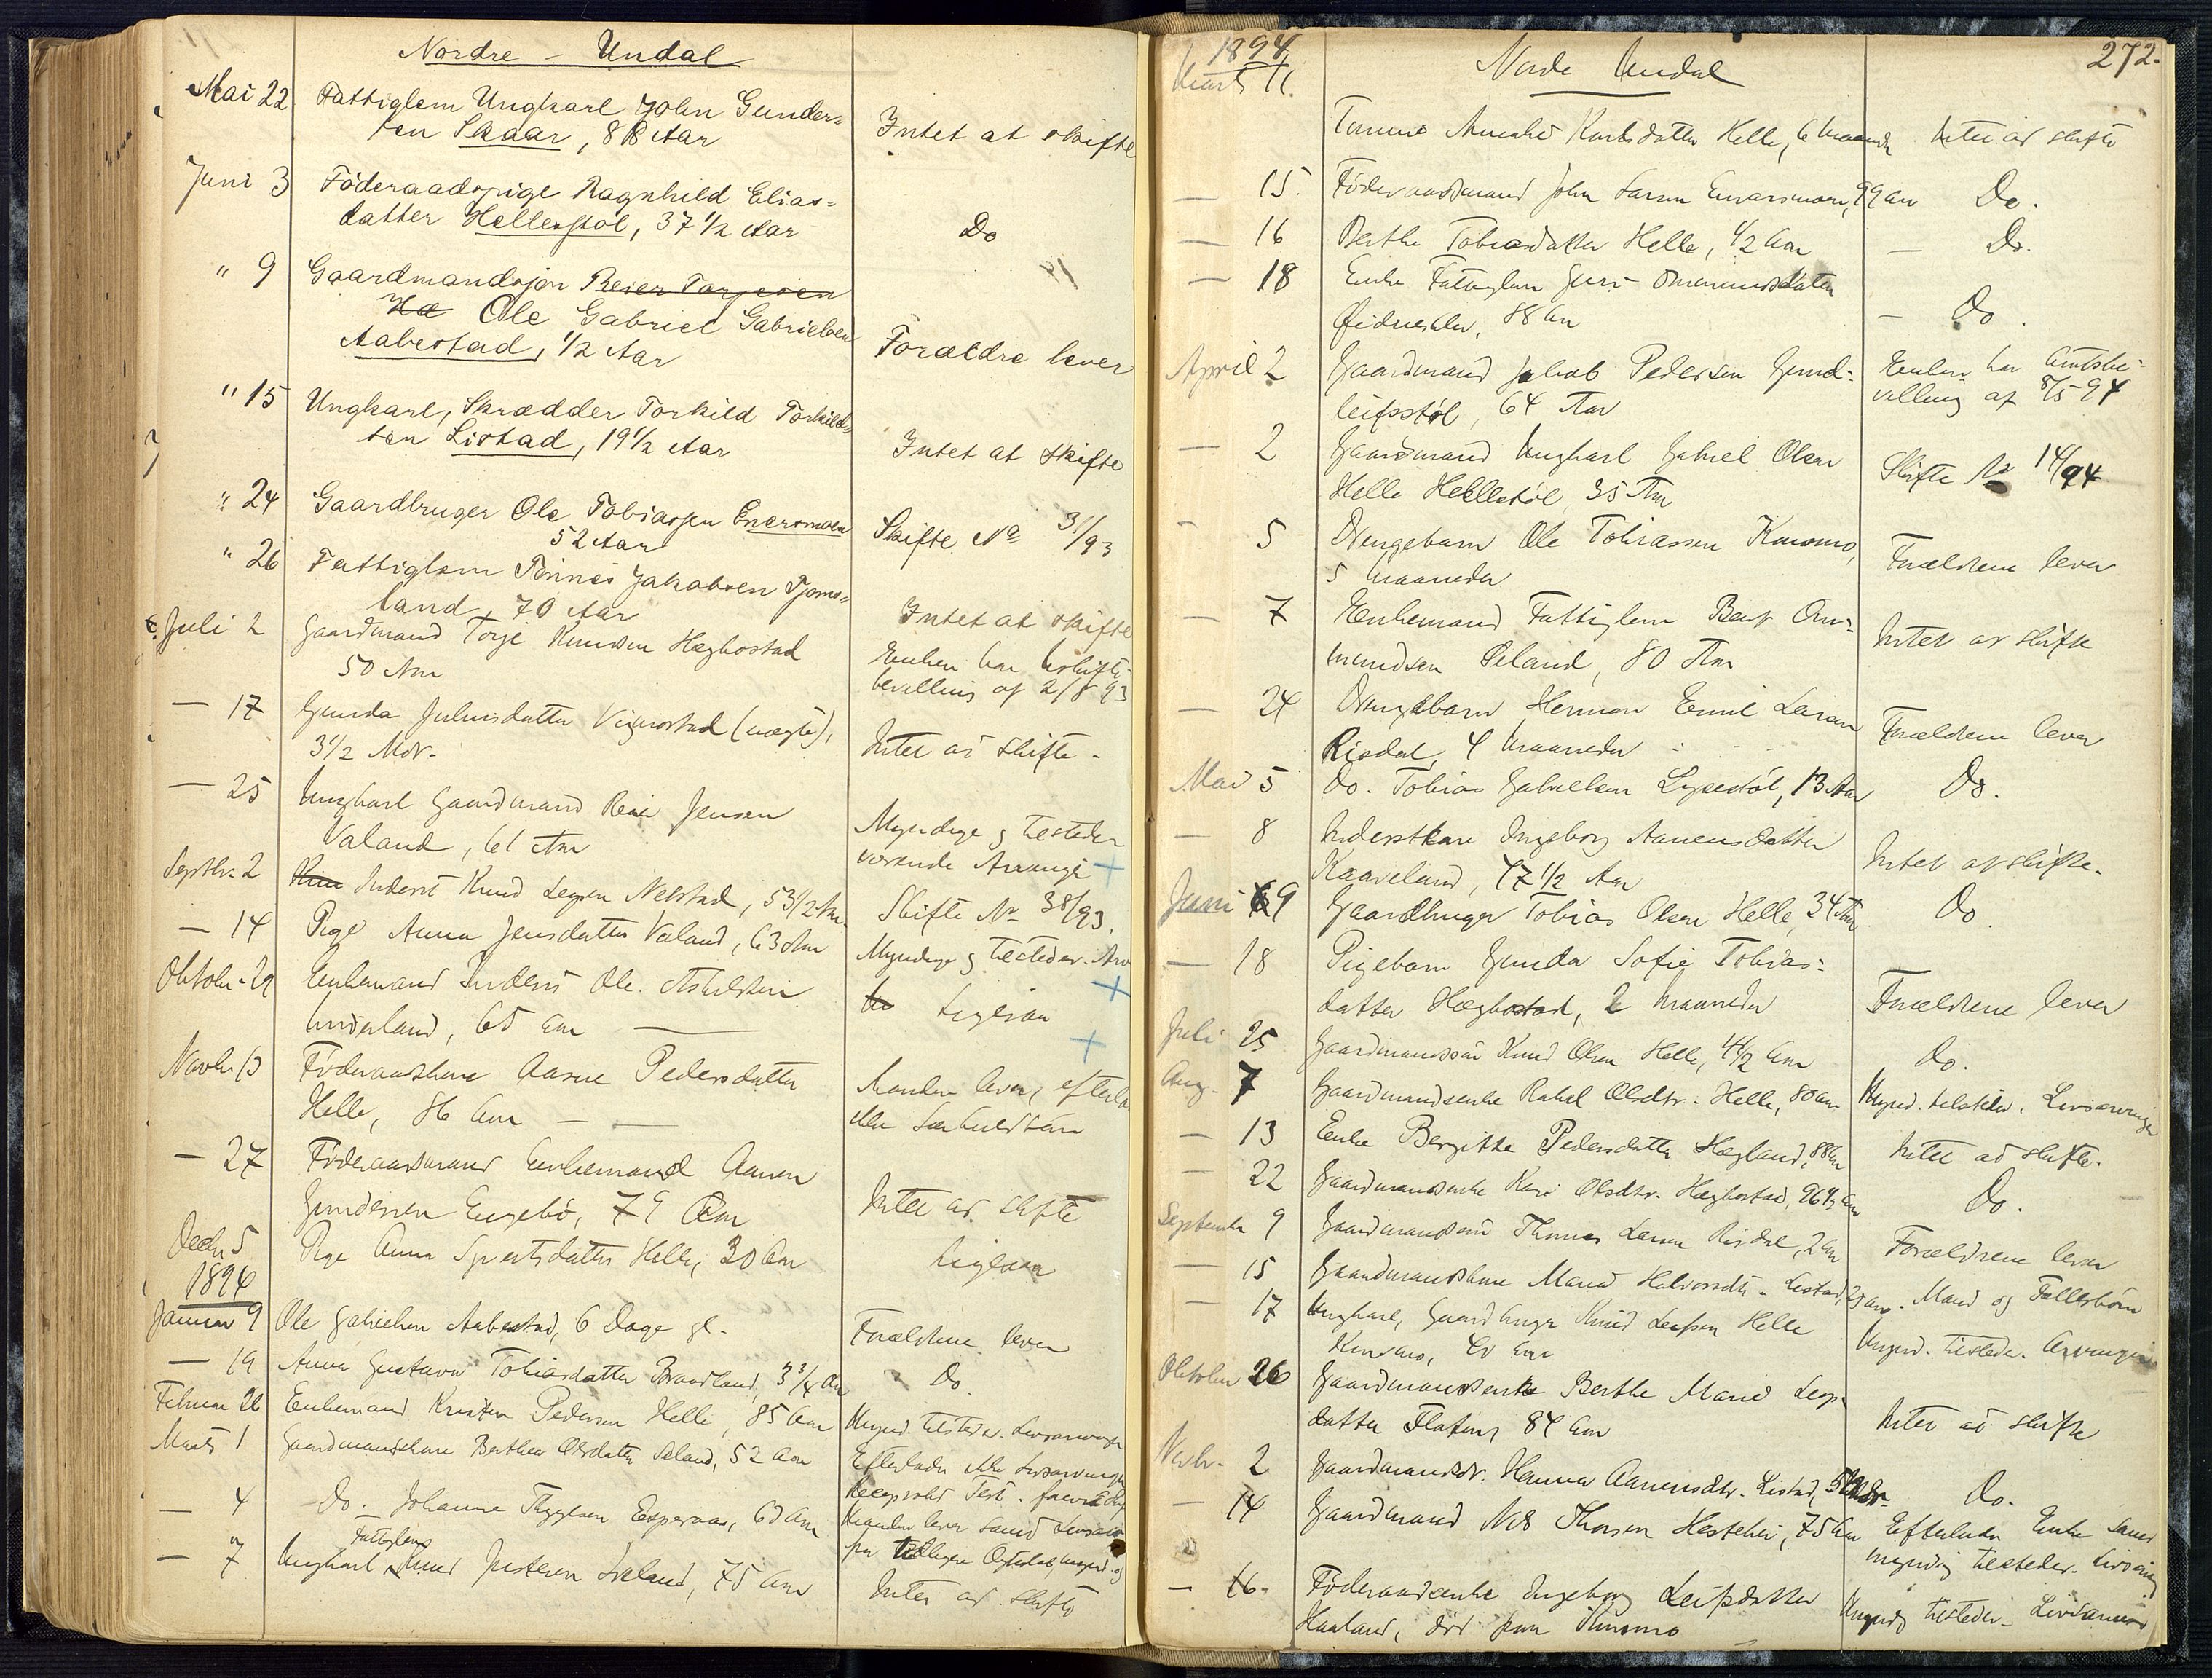 Nordre - Undal
Mai 22 Fattiglem Ungkarl John Gunder-
sen Skaar, 88 Aar Intet at skifte
Juni 3 Föderaadspige Ragnhild Elias-
datter Hellerstöl, 37 1/2 Aar Do
" 9 Gaardmandssön Reier Torjesen
Hæ Ole Gabriel Gabrielsen
Aabestad, 1/2 Aar Forældre lever
" 15 Ungkarl, Skrædder Torkild Torkild-
sen Listad, 19 1/2 Aar Intet at skifte
" 24 Gaardbruger Ole Tobiassen Eneromoen
52 Aar Skifte No 31/93
" 26 Fattiglem Tönnes Jakobsen Tjoms-
land, 70 Aar Intet at skifte
Juli 2 Gaardmand Torje Knudsen Hægbostad
50 Aar Enken har Uskifte-
bevilling af 2/8 93
— 17 Gunda Juliusdatter Vigmostad (uægte),
3 1/2 Mdr. Intet at skifte -
— 25 Ungkarl Gaardmand Reier Jensen
Valand, 61 Aar Myndige & tilsteder
værende Arvinge
Septbr. 2 Inderst Knud Legsen Nebstad, 53 1/2 Aar Skifte No 38/93.
— 14 Pige Anna Jensdatter Valand, 63 Aar Myndige & tilsteder. Arv
Oktobr. 29 Enkemand Inderst Ole Askildsen
land, 65 Aar Ligesaa
Novbr 13 Föderaadskone Aasne Pedersdatter
Helle, 86 Aar Manden lever, efterla
eller Særkuldbarn
— 27 Föderaadsmand Enkemand Aanen
Gundersen Eegebö, 79 Aar Intet at skifte
Decbr 5 Pige Anna Sjvertsdatter Helle, 30 Aar Ligesaa
1894
Januar 9 Ole Gabrielsen Aabestad, 6 Dage gl. Forældrene lever
— 19 Anna Gustava Tobiasdatter Braadland, 3 3/4 Aar Do
Februar 26 Enkemand Kristen Pedersen Helle, 85 Aar Mynd. tilsteder. Livsarvinger
Marts 1 Gaardmandskone Berthea Olsdatter Seland, 52 Aar Efterlader ikke Livsarvinger
— 4 Do. Johanne Tryggsen Esperaas, 60 Aar Manden lever samt Livsarv
Fattiglem
— 7 Ungkarl Knud Justesen Ireland, 75 Aar Intet at skifte
272.
1894 Nordre Undal
Marts 11.
Tomine Amalie Knutsdatter Helle, 6 Maaneder Intet at skifte
— 15. Föderaadsmand John Larsen Eneromoen, 79 Aar Do.
— 16 Berthe Tobiasdatter Helle, 1/2 Aar — Do.
— 18 Enke Fattiglem Guri Omundsdatter
88 Aar — Do.
April 2 Gaardmand Jakob Pedersen Gund-
leifsstöl, 64 Aar Enken har Amtsbe-
villing af 8/5 94
— 2 Gaardmand Ungkarl Gabriel Olsen
Helle Hellestöl, 35 Aar Skifte No 14/94
— 5 Drengebarn Ole Tobiassen Kusomo,
5 Maaneder Forældrene lever
— 7 Enkemand Fattiglem Bent Om-
mundsen Seland, 80 Aar Intet at skifte
— 24 Drengebarn Herman Emil Larsen
Risdal, 4 Maaneder Forældrene lever
Mai 5 Do. Tobias Gabrielsen Lygestöl, 13 Aar Do.
— 8 Inderstkone Ingeborg Aanensdatter
Kaaveland, 47 1/2 Aar Intet at skifte.
Juni 9 Gaardbruger Tobias Olsen Helle, 34 Aar Do
— 18 Pigebarn Gunda Sofie Tobias-
datter Hægbostad, 2 Maaneder Forældrene lever
Juli 25 Gaardmandssön Knud Olsen Helle, 4 1/2 Aar Do.
Aug. 7 Gaardmandsenke Rakel Olsdtr. Helle, 80 Aar Mynd. tilsteder. Livsarvinger
— 13 Enke Bergitte Pedersdatter Høgland, 88 Aar Intet at skifte.
— 22 Gaardmandsenke Kari Olsdtr. Hægbostad, 96 1/2 Aar Do.
September 9 Gaardmandssön Thomas Larsen Risdal, 2 Aar Forældrene lever
— 15 Gaardmandskone Maria Halvorsdtr. Listad, Aar. Mand og Fællesbörn
— 17 Ungkarl, Gaardbruger Knud Leifsen Helle
Kusomo, Aar Mynd. tilsteder. Arvinger
Oktober 26 Gaardmandsenke Berthe Marie Legs-
datter Flaten, 84 Aar Intet at skifte
Novbr. 2 Gaardmandsdtr. Hanna Aanensdtr. Listad, Do.
— 14 Gaardmand Nils Thorsen Hestehei, 75 Aar Efterlader Enke samt
myndig tilsteder. Livsarving
— 16. Föderaadsenke Ingeborg Leifsdatter
Haaland, död paa Kusomo Myndig tilsteder. Livsarving